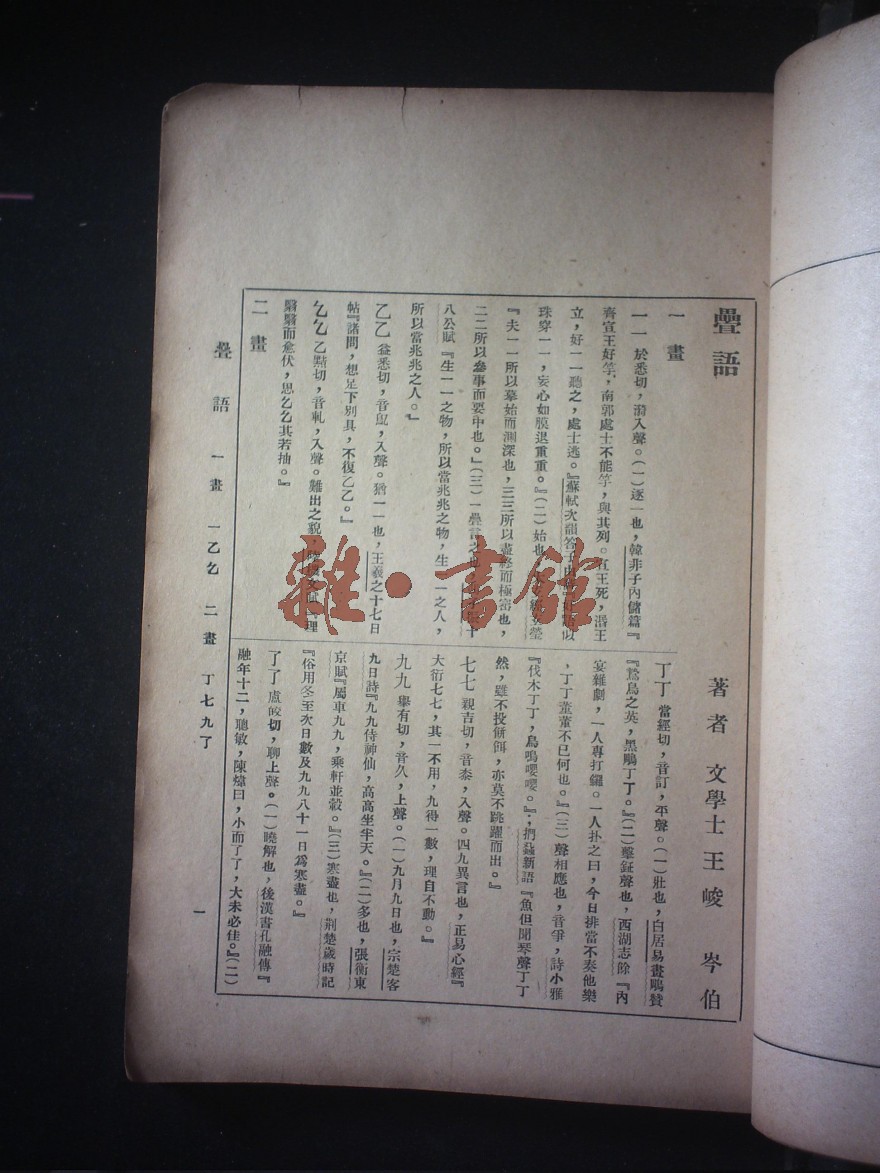 疊語
著者 文學士 王峻 岑伯
一畫
一一 於悉切，漪入聲。（一）逐一也，韓非子內儲篇『
齊宣王好竽，南郭處士不能竽，與其列。宣王死，湣王
立，好一一聽之，處士逃。』蘇軾次韻答子
珠穿一一，妄心如膜退重重。』（二）始也
『夫一一所以摹始而測深也，三三所以盡終而極密也，
二二所以參事而要中也。』（三）一疊言之
八公賦『生一一之物，所以當兆兆之物，生一一之人，
所以當兆兆之人。』
乙乙 益悉切，音鳦，入聲。猶一一也，王羲之十七日
帖『諸問，想足下別具，不復乙乙。』
乞乞 乙黠切，音軋，入聲。難出之貌，
翳翳而愈伏，思乞乞其若抽。』
二畫
丁丁 當經切，音訂，平聲。（一）壯也，白居易畫鵰贊
『鷙鳥之英，黑鵰丁丁。』（二）擊鉦聲也，西湖志餘『內
宴雜劇，一人專打鑼。一人扑之曰，今日排當不奏他樂
，丁丁董董不已何也。』（三）聲相應也，音爭，詩小雅
『伐木丁丁，鳥鳴嚶嚶。』；捫蝨新語『魚但聞琴聲丁丁
然，雖不投餅餌，亦莫不跳躍而出。』
七七 親吉切，音桼，入聲。四九異言也，正易心經『
大衍七七，其一不用，九得一數，理自不動。』
九九 舉有切，音久，上聲。（一）九月九日也，宗楚客
九日詩『九九侍神仙，高高坐半天。』（二）多也，張衡東
京賦『屬車九九，乘軒並轂。』（三）寒盡也，荆楚歲時記
『俗用冬至次日數及九九八十一日爲寒盡。』
了了 盧皎切，聊上聲。（一）曉解也，後漢書孔融傳『
融年十二，聰敏，陳煒曰，小而了了，大未必佳。』（二）
疊語 一畫 一乙乞 二畫 丁七九了
一
雜·書館